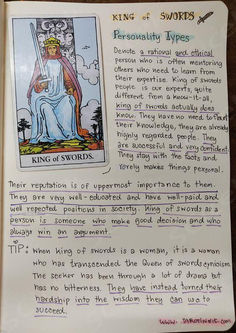 KING of SWORDS
Personality Types
Denote a rational and ethical
person who is often mentoring
others who need to learn from
their expertise. King of Swords
people is our experts, quite
different from a know-it-all,
king of swords actually does
know. They have no need to flaunt
their knowledge, they are already
highly regarded people. They
are successful and very confident.
They stay with the facts and
rarely makes things personal.
KING of SWORDS.
Their reputation is of uppermost importance to them.
They are very well-educated and have well-paid and
well respected positions in society. King of swords as a
person is someone who make good decision and who
always win an argument.
TIP: When king of swords is a woman, it is a woman
who has transcended the Queen of swords cynicism.
The seeker has been through a lot of drama but
has no bitterness. They have instead turned their
hardship into the wisdom they can use to
succeed.